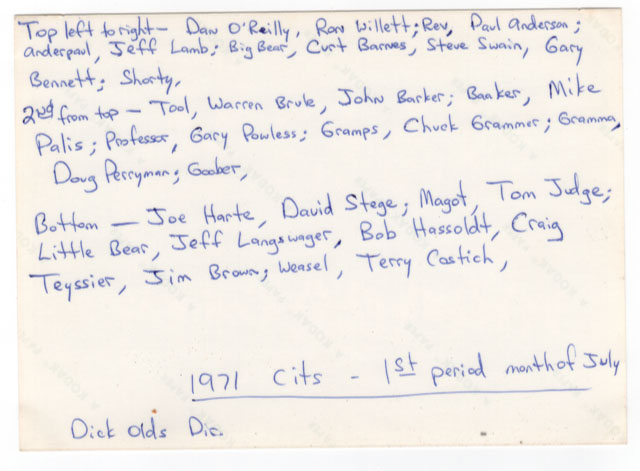 Top left to right - Dan O'Reilly, Ron Willett; Rev, Paul Anderson;
anderpaul, Jeff Lamb; Big Bear, Curt Barnes, Steve Swain, Gary
Bennett; Shorty,
2nd from top - Tool, Warren Brule, John Barker; Baaker, Mike
Palis; Professor, Gary Powless; Gramps, Chuck Grammer; Gramma,
Doug Perryman; Goober,
Bottom - Joe Harte, David Stege; Magot, Tom Judge;
Little Bear, Jeff Langswager, Bob Hassoldt, Craig
Teyssier, Jim Brown; Weasel, Terry Costich,
1971 Cits - 1st period month of July
Dick Olds Dir.